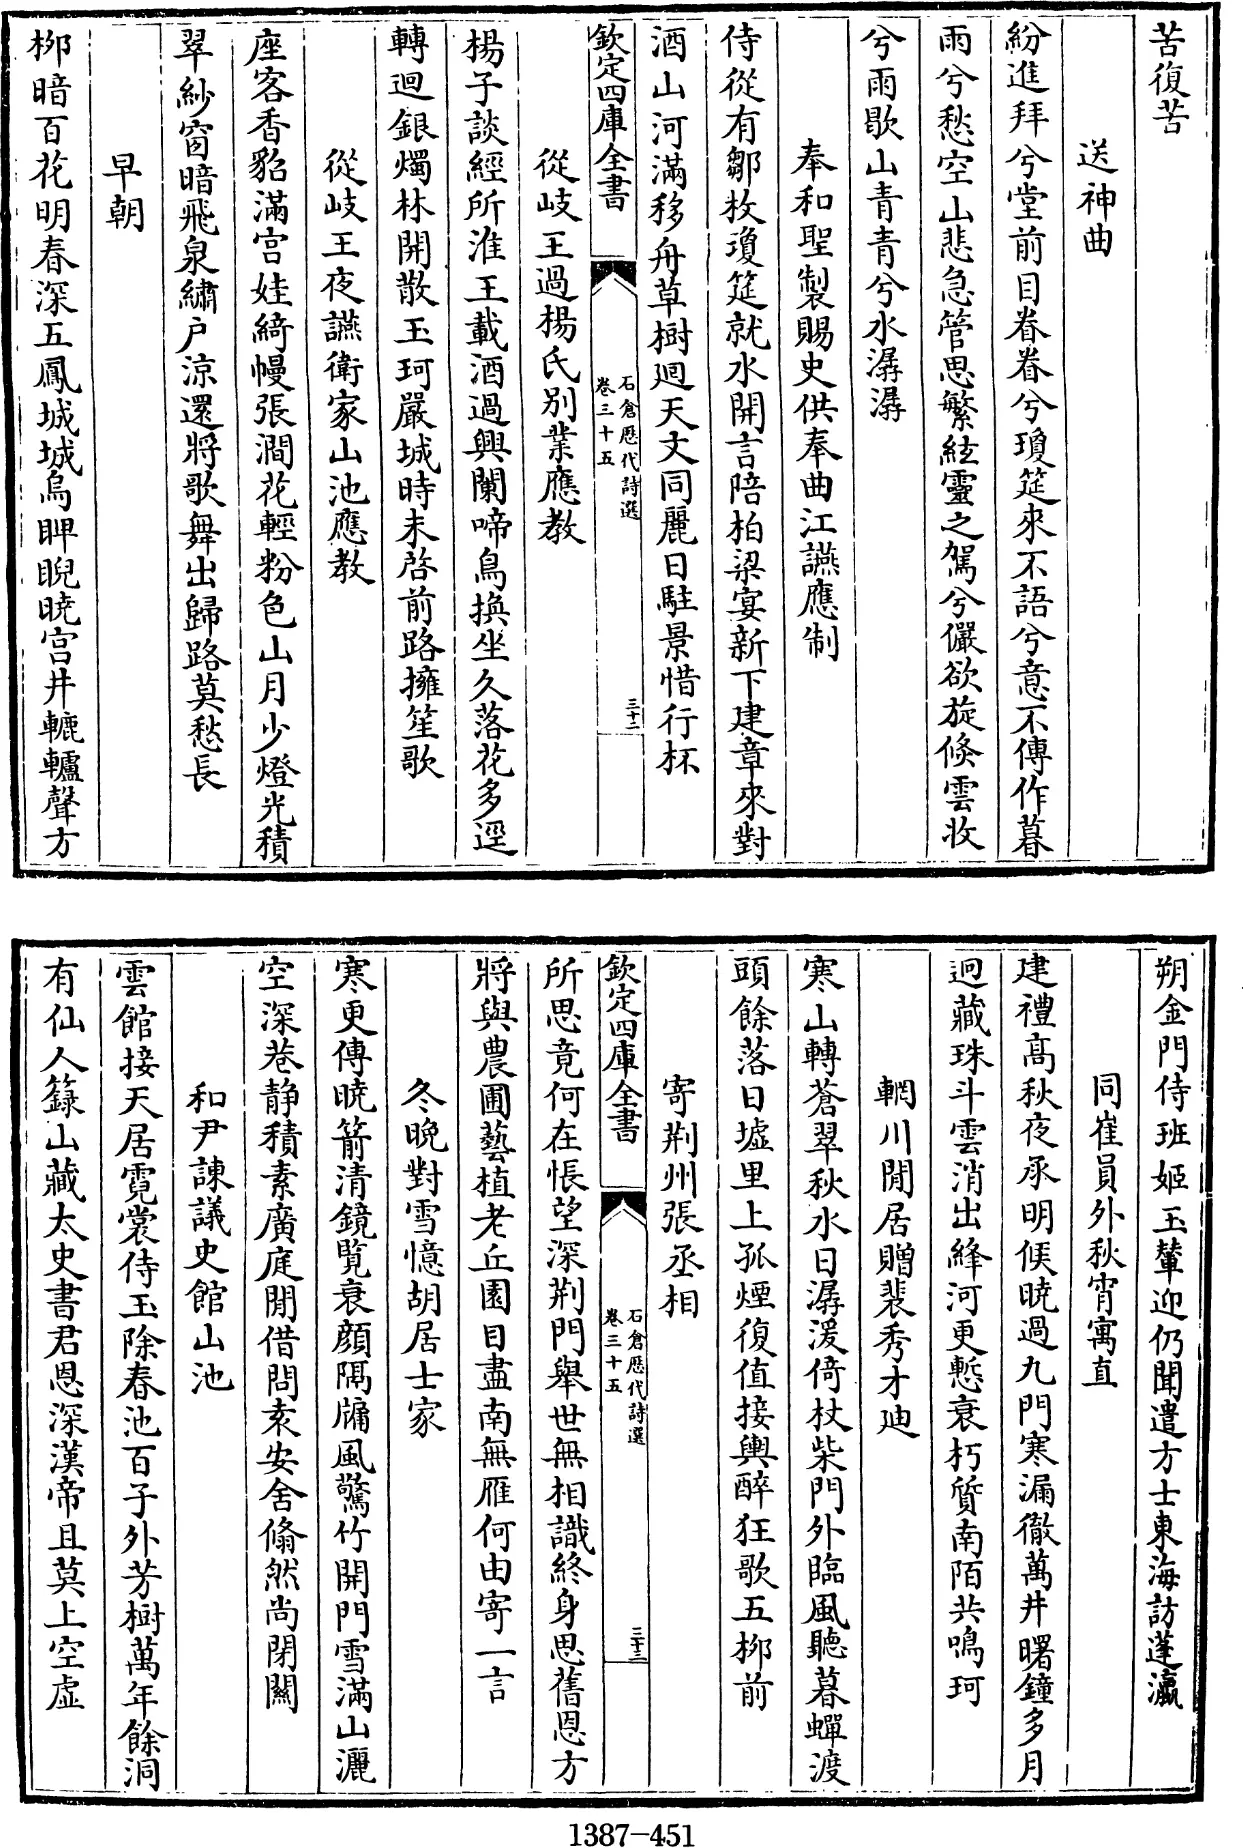 苦復苦
送神曲
紛進拜兮堂前目眷眷兮瓊筵來不語兮意不傳作暮
雨兮愁空山悲急管思繁絃靈之駕兮儼欲旋倐雲收
兮雨歇山青青兮水潺潺
奉和聖製賜史供奉曲江讌應制
侍從有鄒枚瓊筵就水開言陪柏梁宴新下建章來對
酒山河滿移舟草樹迴天文同麗日駐景惜行杯
欽定四庫全書
石倉歷代詩選
卷三十五
三十二
從岐王過楊氏別業應教
楊子談經所淮王載酒過興闌啼鳥換坐久落花多逕
轉迴銀燭林開散玉珂嚴城時未啓前路擁笙歌
從岐王夜讌衛家山池應教
座客香貂滿宫娃綺幔張澗花輕粉色山月少燈光積
翠紗窗暗飛泉繡户涼還將歌舞出歸路莫愁長
早朝
栁暗百花明春深五鳳城城烏睥睨曉宫井轆轤聲方
朔金門侍班姬玉輦迎仍聞遣方士東海訪蓬瀛
同崔員外秋宵寓直
建禮髙秋夜承明候曉過九門寒漏徹萬井曙鐘多月
迥藏珠斗雲消出絳河更慙衰朽質南陌共鳴珂
輞川閒居贈裴秀才廸
寒山轉蒼翠秋水日潺湲倚杖柴門外臨風聽暮蟬渡
頭餘落日墟里上孤煙復值接輿醉狂歌五栁前
寄荆州張丞相
欽定四庫全書
石倉歷代詩選
卷三十五
三十三
所思竟何在悵望深荆門舉世無相識終身思舊恩方
將與農圃藝植老丘園目盡南無雁何由寄一言
冬晚對雪憶胡居士家
寒更傳曉箭清鏡覧衰顔隔牗風驚竹開門雪滿山灑
空深巷静積素廣庭閒借問袁安舍翛然尚閉關
和尹諫議史館山池
雲館接天居霓裳侍玉除春池百子外芳樹萬年餘洞
有仙人籙山藏太史書君恩深漢帝且莫上空虚
1387-451